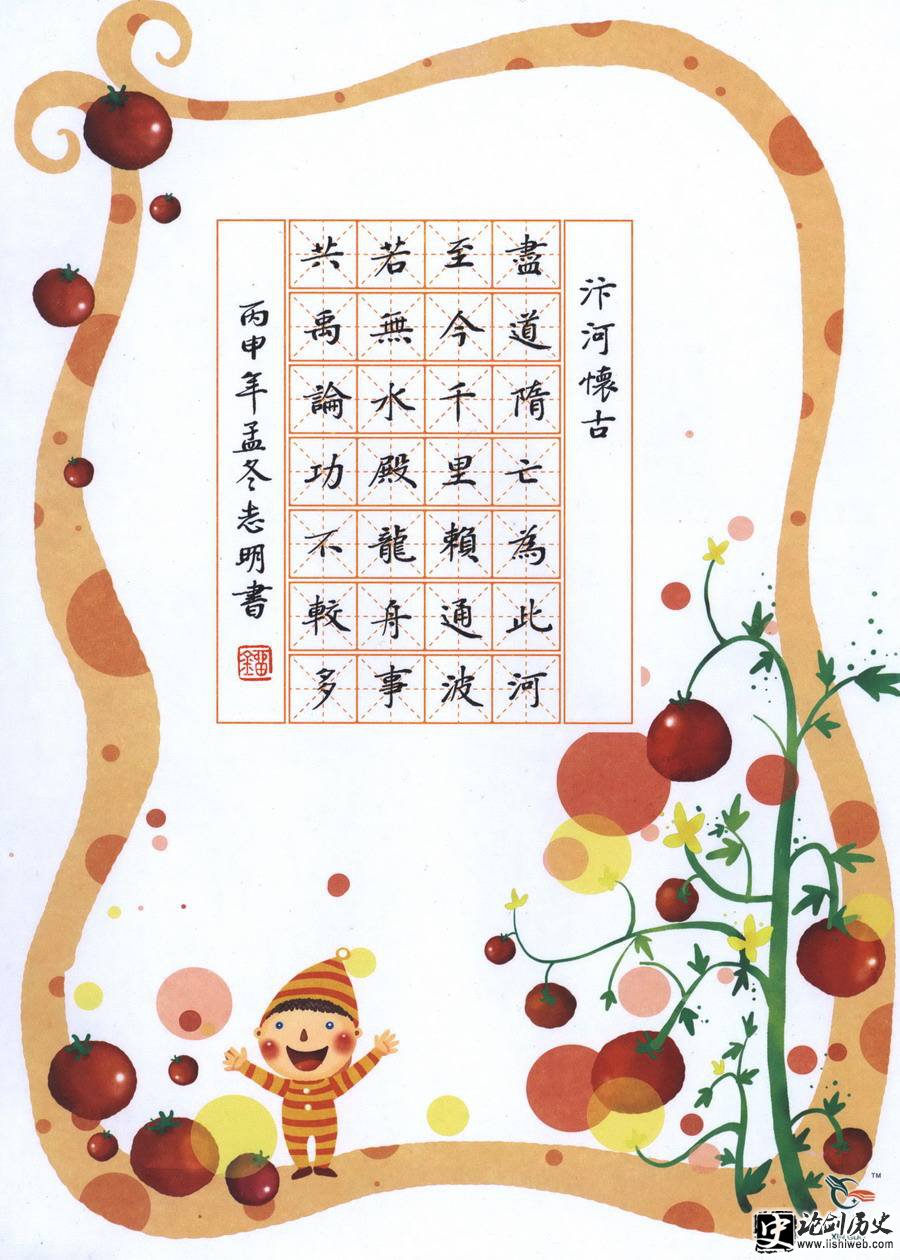 汴河懷古
盡道隋亡為此河
至今千里賴通波
若無水殿龍舟事
共禹論功不較多
丙申年孟冬志明書
TM
史 论剑历史
www.lishiweb.com